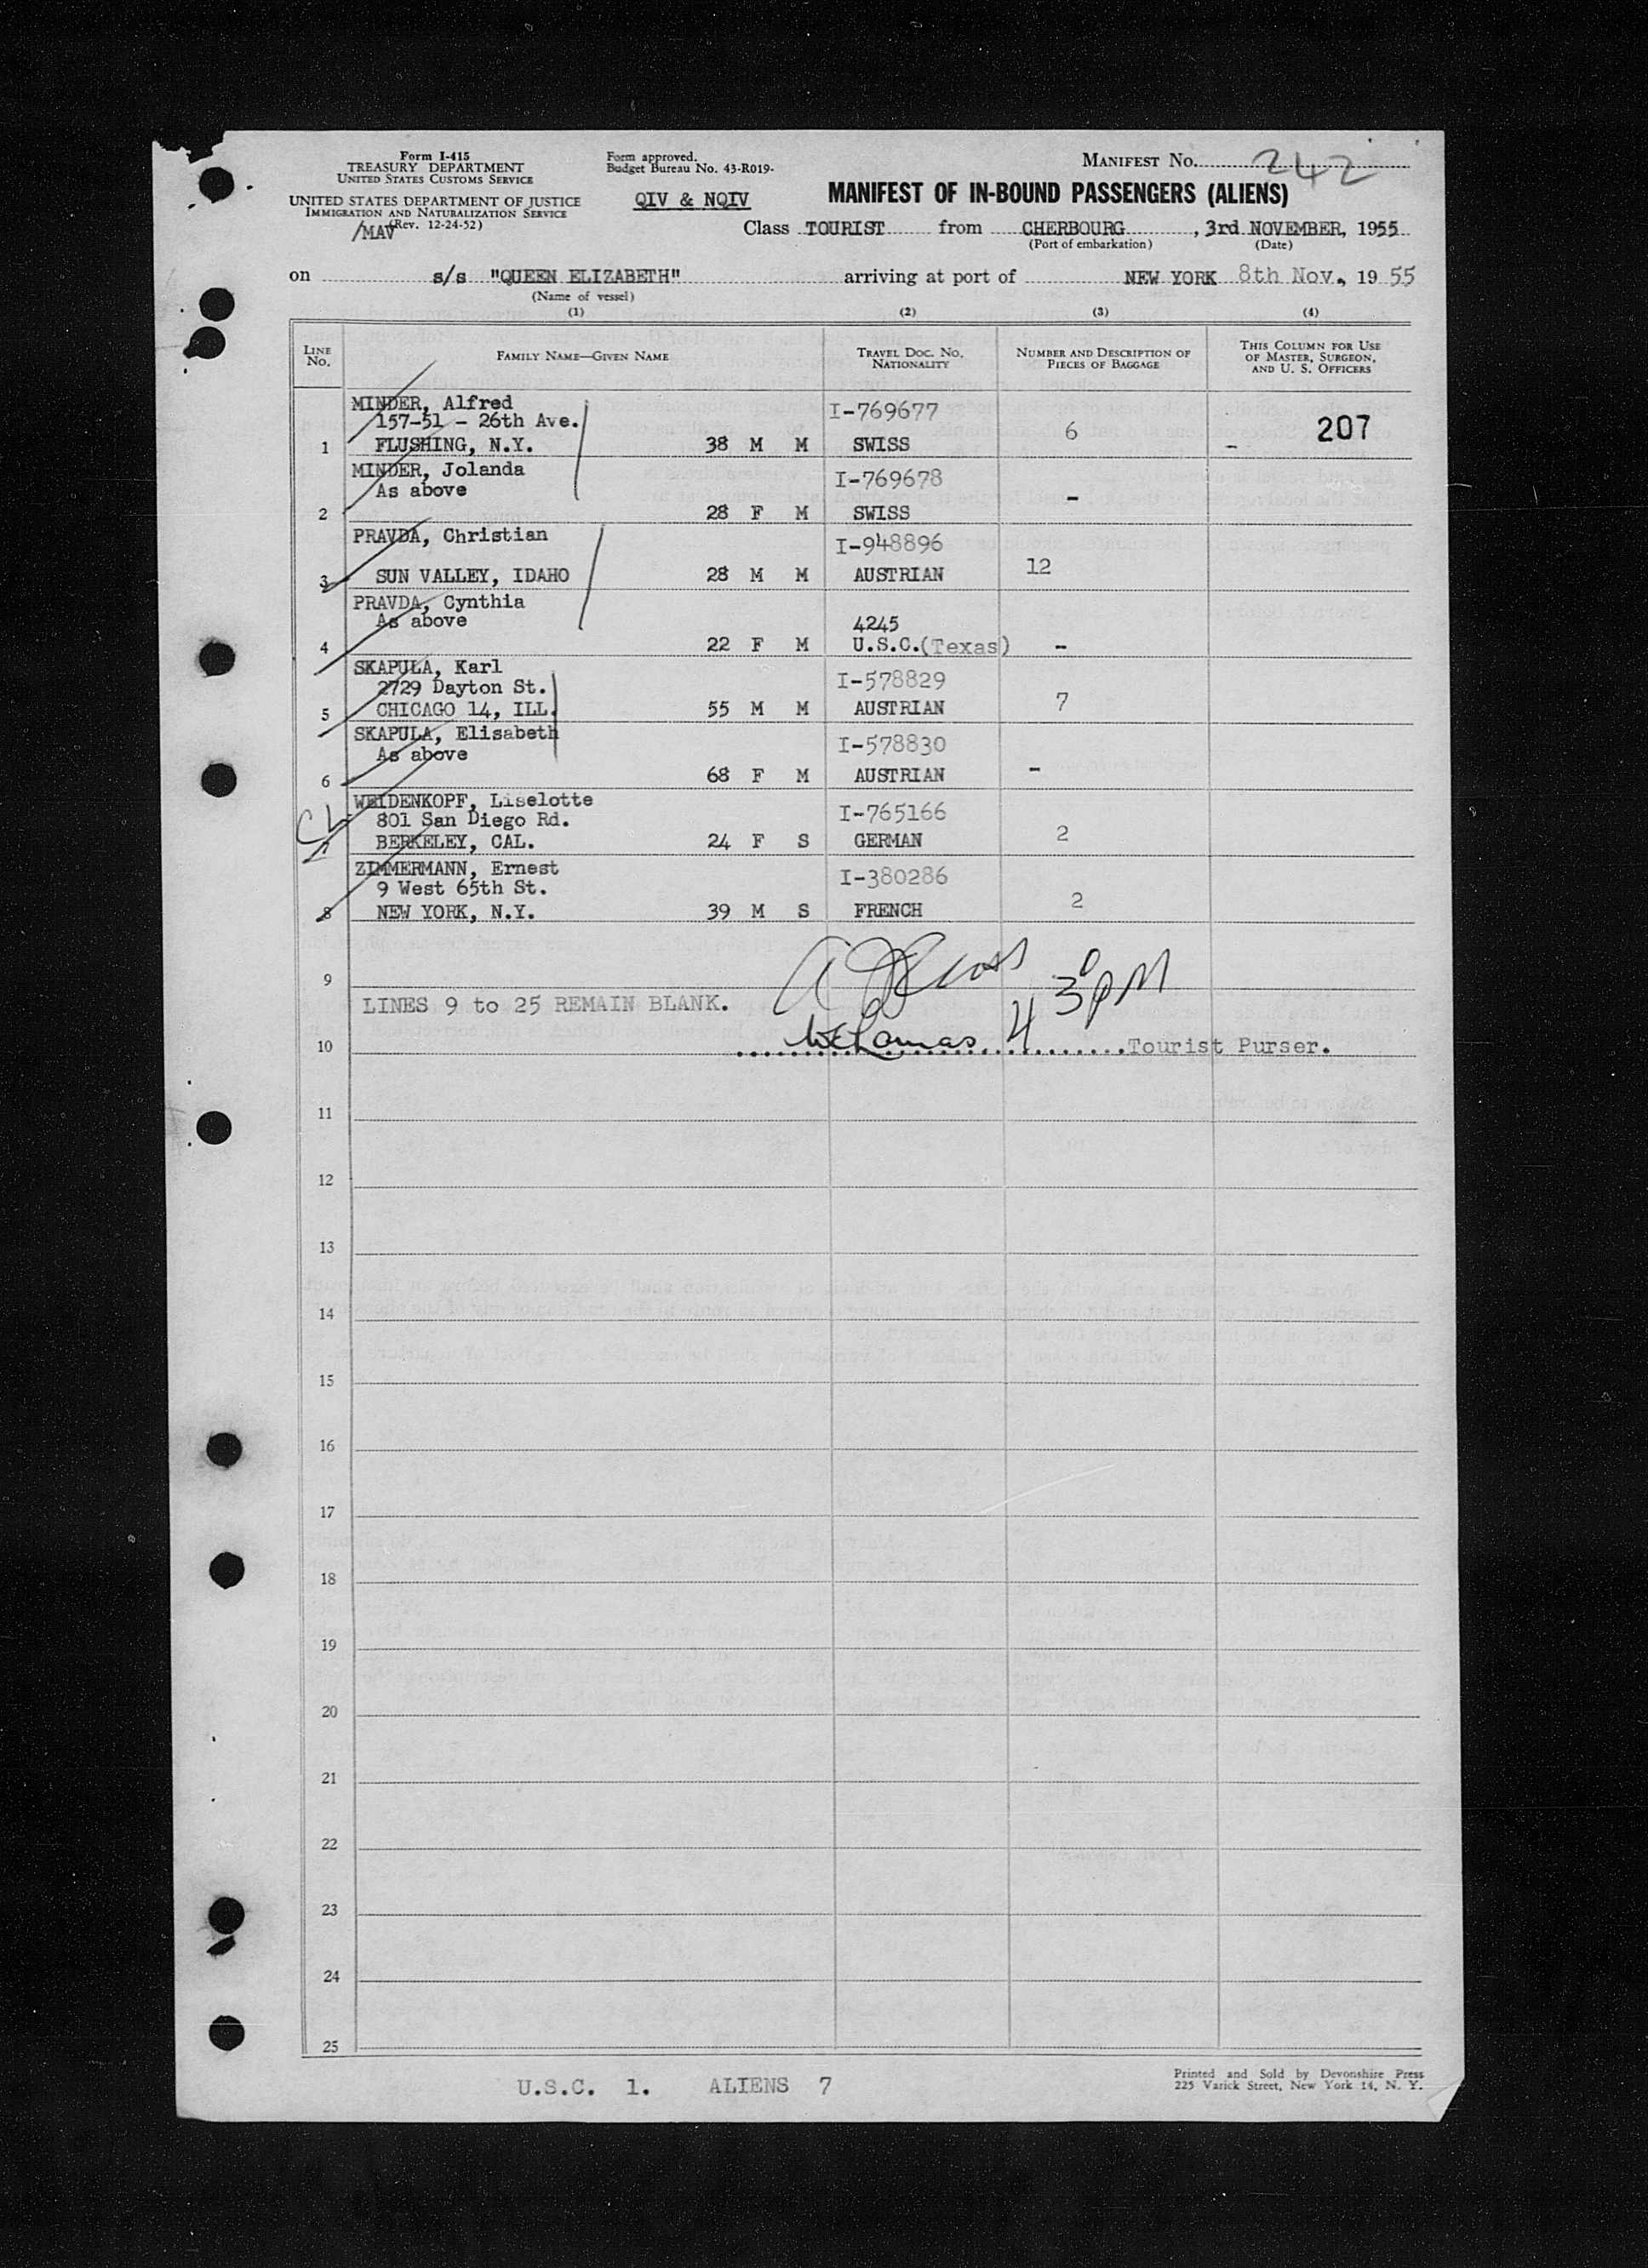 Form I-415
TREASURY DEPARTMENT
UNITED STATES CUSTOMS SERVICE
UNITED STATES DEPARTMENT OF JUSTICE
IMMIGRATION AND NATURALIZATION SERVICE
(Rev. 12-24-52)
/MAV
Form approved.
Budget Bureau No. 43-R019-
QIV & NQIV
MANIFEST NO. 242
MANIFEST OF IN-BOUND PASSENGERS (ALIENS)
Class TOURIST from CHERBOURG, 3rd NOVEMBER, 1955
(Port of embarkation) (Date)
on s/s "QUEEN ELIZABETH" arriving at port of NEW YORK 8th Nov., 19 55
(Name of vessel)
(1) (2) (3) (4)
LINE NO. FAMILY NAME—GIVEN NAME TRAVEL DOC. NO. NATIONALITY NUMBER AND DESCRIPTION OF PIECES OF BAGGAGE THIS COLUMN FOR USE OF MASTER, SURGEON, AND U. S. OFFICERS
MINDER, Alfred I-769677
157-51 - 26th Ave. 6 207
1 FLUSHING, N.Y. 38 M M SWISS -
MINDER, Jolanda I-769678
As above -
2 28 F M SWISS
PRAVDA, Christian I-948896
3 SUN VALLEY, IDAHO 28 M M AUSTRIAN 12
PRAVDA, Cynthia
As above 4245
4 22 F M U.S.C.(Texas) -
SKAPULA, Karl I-578829
2729 Dayton St. 7
5 CHICAGO 14, ILL. 55 M M AUSTRIAN
SKAPULA, Elisabeth I-578830
As above
6 68 F M AUSTRIAN -
WEIDENKOPF, Liselotte I-765166
801 San Diego Rd.
7 BERKELEY, CAL. 24 F S GERMAN 2
ZIMMERMANN, Ernest I-380286
9 West 65th St. 2
8 NEW YORK, N.Y. 39 M S FRENCH
9
LINES 9 to 25 REMAIN BLANK.
4 30 PM
10 Tourist Purser.
11
12
13
14
15
16
17
18
19
20
21
22
23
24
25
U.S.C. 1. ALIENS 7
Printed and Sold by Devonshire Press
225 Varick Street, New York 14, N. Y.